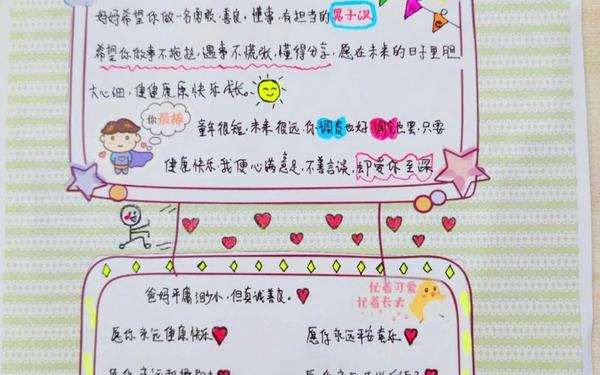 好好希望你做一名勇敢、善良、懂事、有担当的男子汉
希望你做事不拖拉,遇事不慌张,懂得分享,愿在未来的日子里胆
大心细,健健康康快乐成长。
你最棒
童年很短,未来很远,你调皮也好 也罢,只要
健康快乐,我便心满意足,不善言谈,却爱你至深
爸妈平庸渺小,但真诚善良。
忙着可爱
忙着长大
愿你永远健康快乐
愿你永远平安喜乐